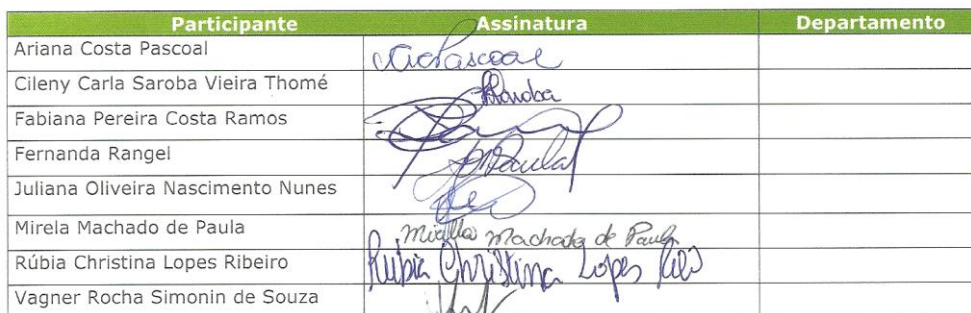 Participante Assinatura Departamento
Ariana Costa Pascoal
Cileny Carla Saroba Vieira Thomé
Fabiana Pereira Costa Ramos
Fernanda Rangel
Juliana Oliveira Nascimento Nunes
Mirela Machado de Paula Mirella Machado de Paula
Rúbia Christina Lopes Ribeiro Rúbia Christina Lopes
Vagner Rocha Simonin de Souza